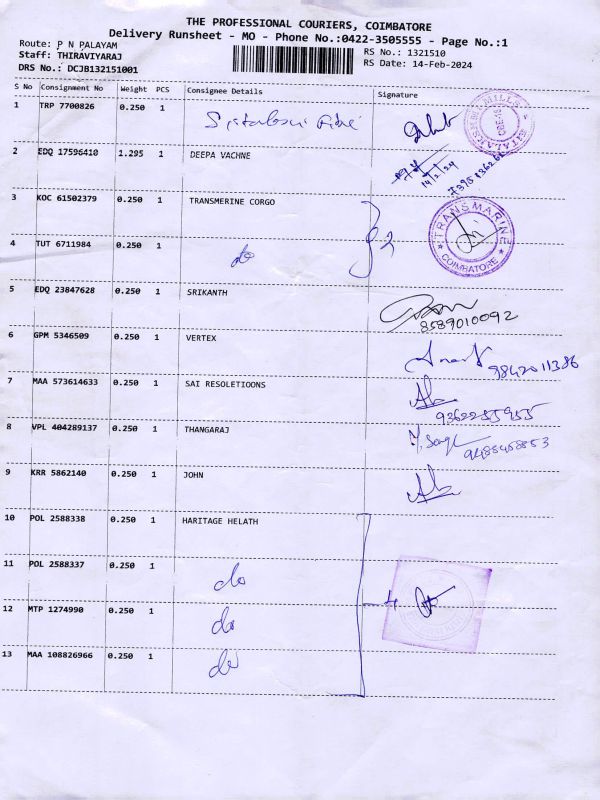 THE PROFESSIONAL COURIERS, COIMBATORE
Delivery Runsheet - MO - Phone No.:0422-3505555 - Page No.:1
Route: P N PALAYAM
Staff: THIRAVIYARAJ
DRS No.: DCJB132151001
RS No.: 1321510
RS Date: 14-Feb-2024
S No Consignment No Weight PCS Consignee Details Signature
1 TRP 7700826 0.250 1
2 EDQ 17596410 1.295 1 DEEPA VACHNE
14/2/24
3 KOC 61502379 0.250 1 TRANSMERINE CORGO
2
TRANSMARINE
COIMBATORE
4 TUT 6711984 0.250 1 do
5 EDQ 23847628 0.250 1 SRIKANTH
8589010092
6 GPM 5346509 0.250 1 VERTEX
9842011386
7 MAA 573614633 0.250 1 SAI RESOLETIOONS
9362255955
8 VPL 404289137 0.250 1 THANGARAJ
9 KRR 5862140 0.250 1 JOHN
10 POL 2588338 0.250 1 HARITAGE HELATH
11 POL 2588337 0.250 1 do
4
12 MTP 1274990 0.250 1 do
13 MAA 108826966 0.250 1 do